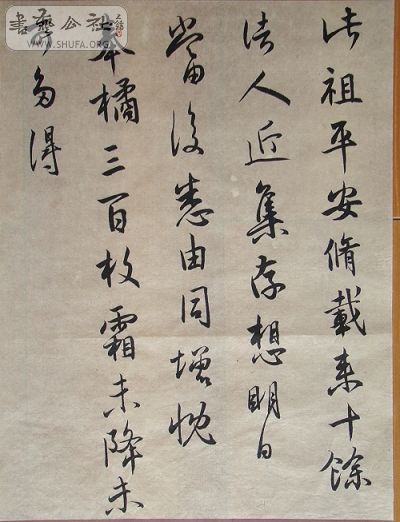 此祖平安脩載來十餘
諸人近集存想明日
當復悉由同增慨
奉橘三百枚霜未降未
可多得
公社
WWW.SHUFA.ORG